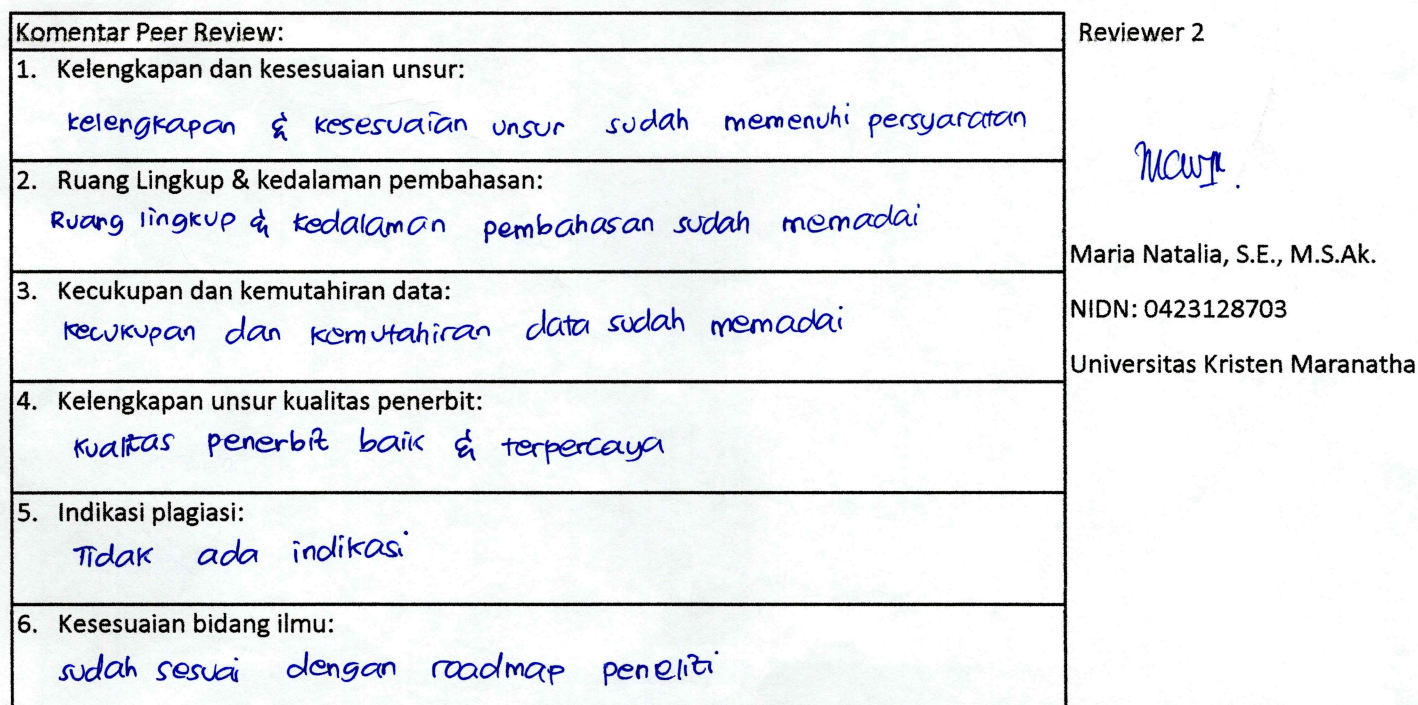 Komentar Peer Review:
1. Kelengkapan dan kesesuaian unsur:
kelengkapan & kesesuaian unsur sudah memenuhi persyaratan
2. Ruang Lingkup & kedalaman pembahasan:
Ruang lingkup & kedalaman pembahasan sudah memadai
3. Kecukupan dan kemutahiran data:
kecukupan dan kemutahiran data sudah memadai
4. Kelengkapan unsur kualitas penerbit:
kualitas penerbit baik & terpercaya
5. Indikasi plagiasi:
Tidak ada indikasi
6. Kesesuaian bidang ilmu:
sudah sesuai dengan roadmap peneliti
Reviewer 2
Maria Natalia, S.E., M.S.Ak.
NIDN: 0423128703
Universitas Kristen Maranatha